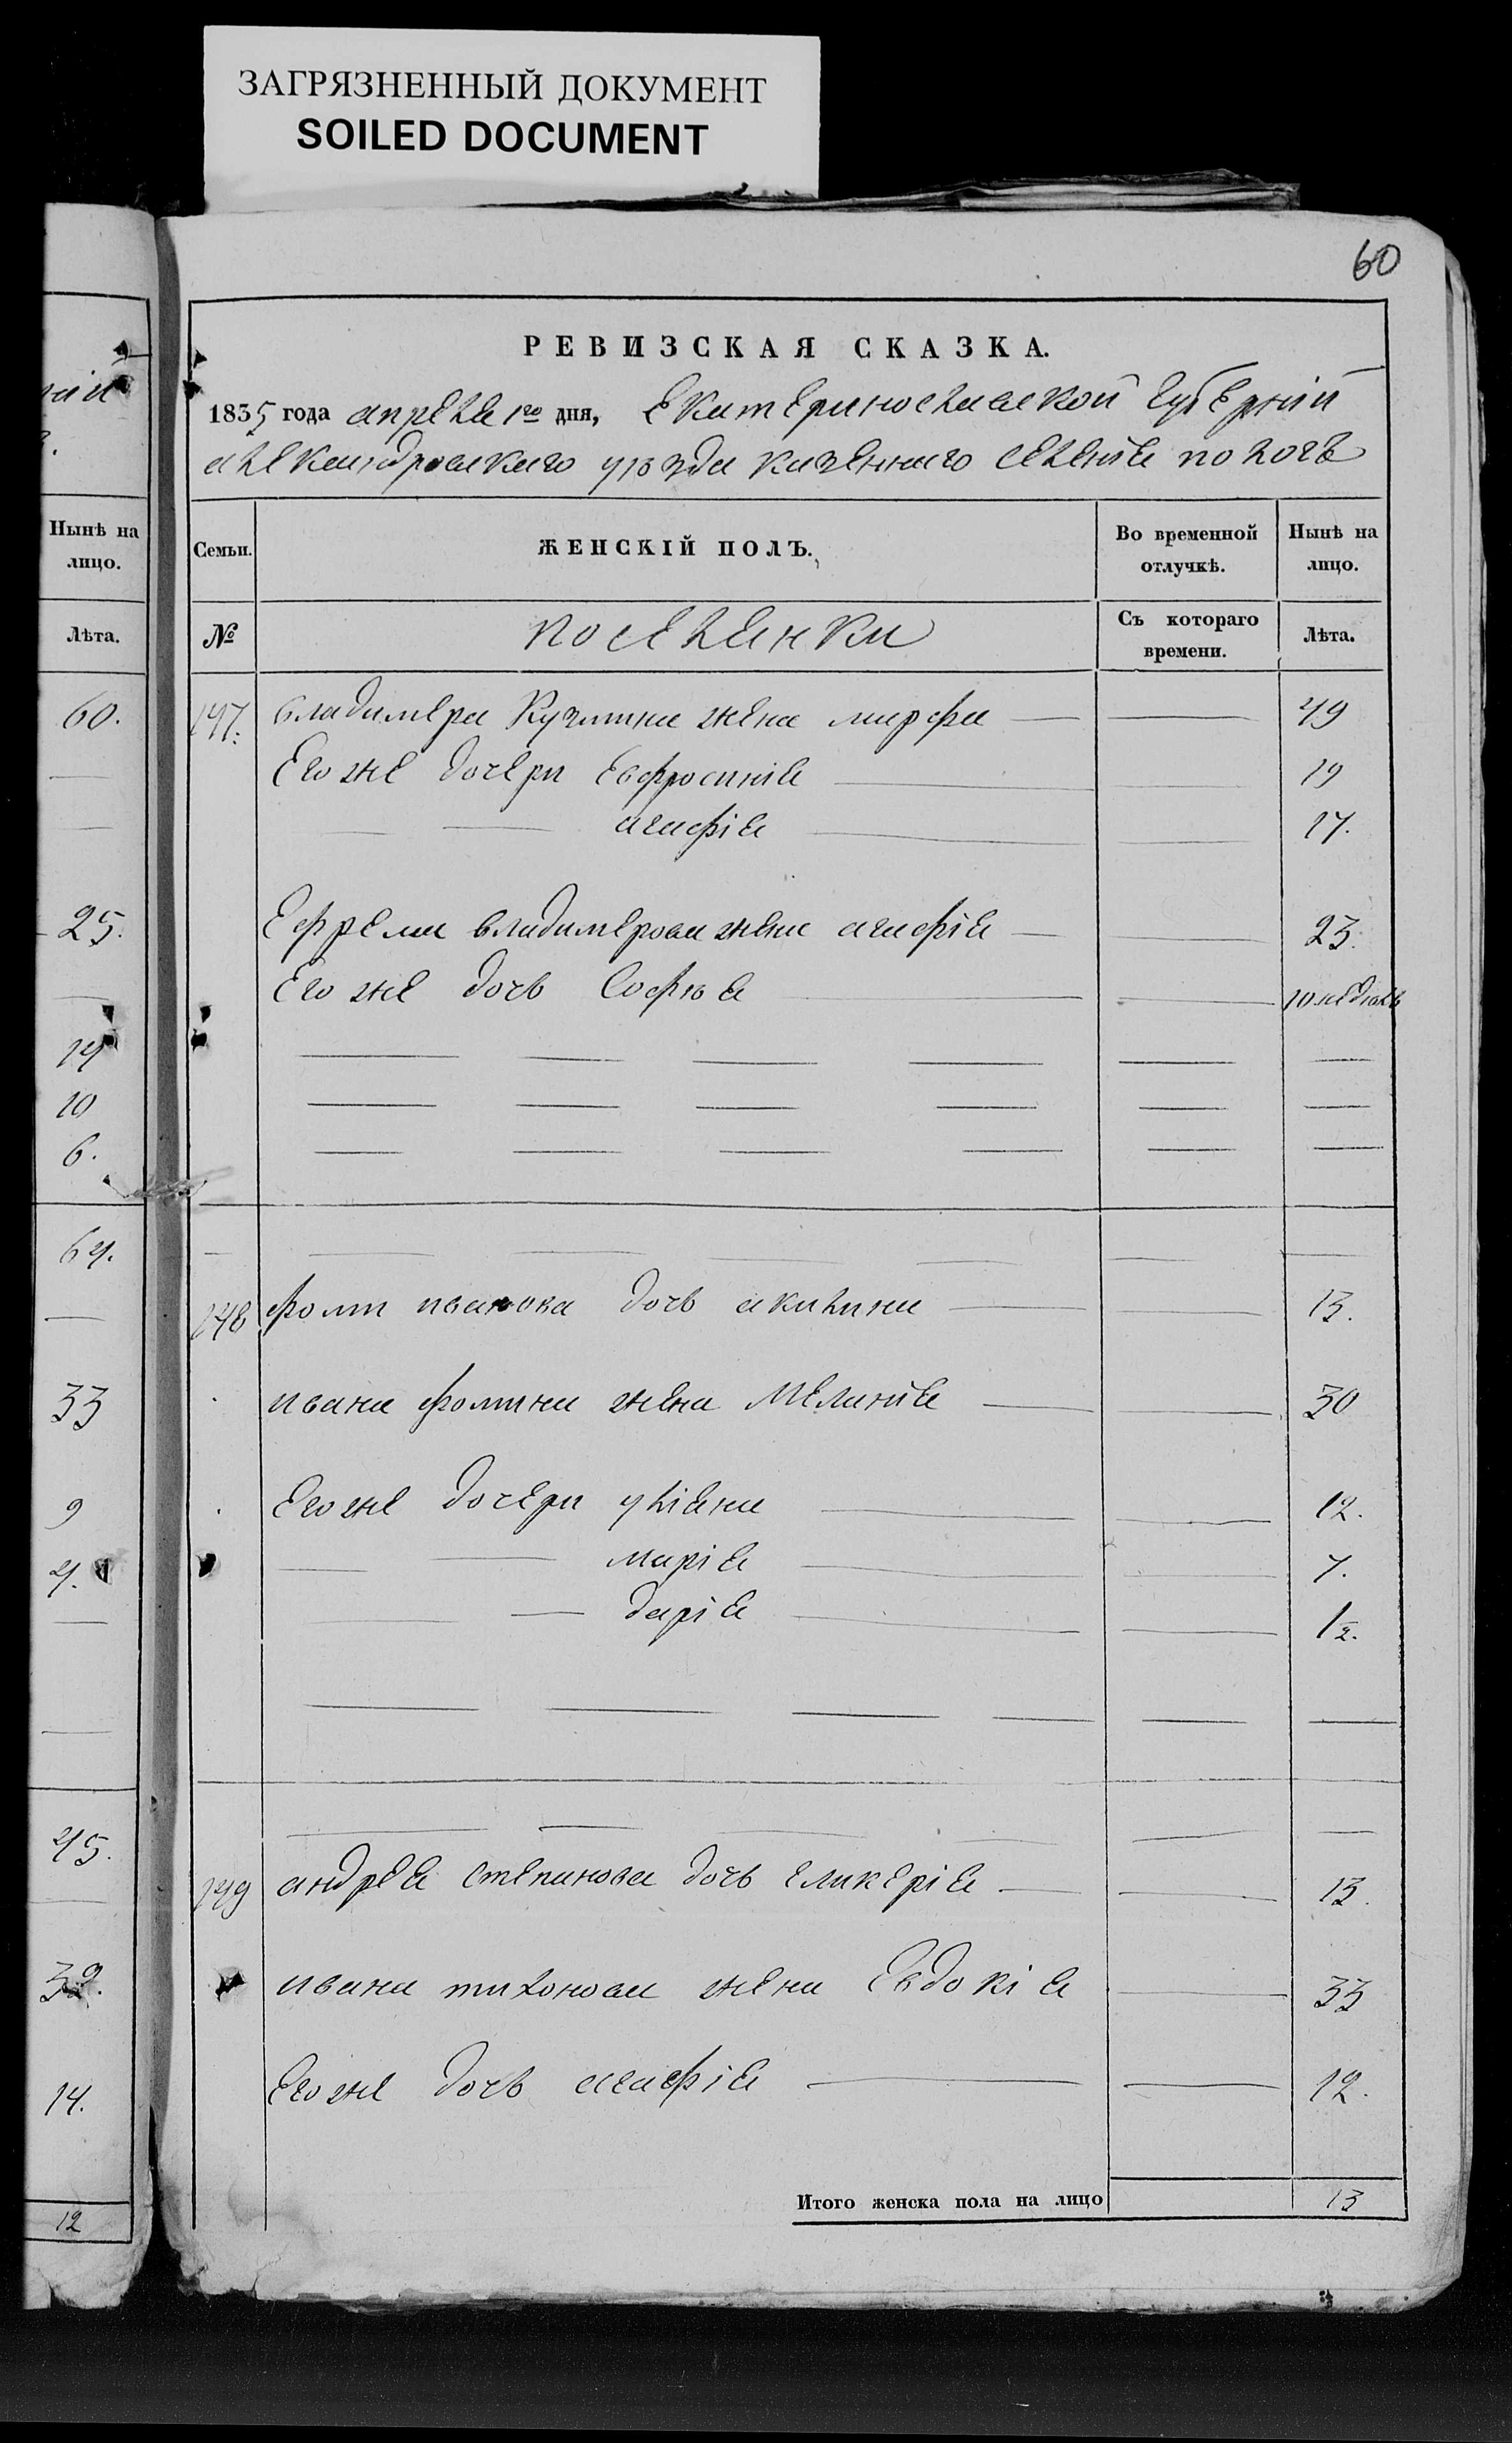 ЗАГРЯЗНЕННЫЙ ДОКУМЕНТ
SOILED DOCUMENT
60
РЕВИЗСКАЯ СКАЗКА.
1835 года апреля 1го дня, Екатеринославской Губернии
александровскаго уѣзда казеннаго селения
Нынѣ на лицо.
Лѣта.
60.
25.
14
10
6.
64.
33
9
4.
45.
32.
14.
12
Семьи.
ЖЕНСКІЙ ПОЛЪ.
Во временной отлучкѣ.
Нынѣ на лицо.
№
поселянки
Съ котораго времени.
Лѣта.
147. владимера Кузмина жена марфа 49
Его же дочери Евфросиния 19
агафiя 17.
Ефрема владимерова жена агафiя 23.
Его же дочь Софья 10 недель
148 фомы иванова дочь акилина 13.
ивана фомина жена Мелания 30
Его же дочери улiяна 12.
марiя 7.
дарiя 1/2.
149 андрея степанова дочь гликерiя 13.
ивана тихонова жена Евдокiя 33
Его же дочь агафiя 12.
Итого женска пола на лицо 13